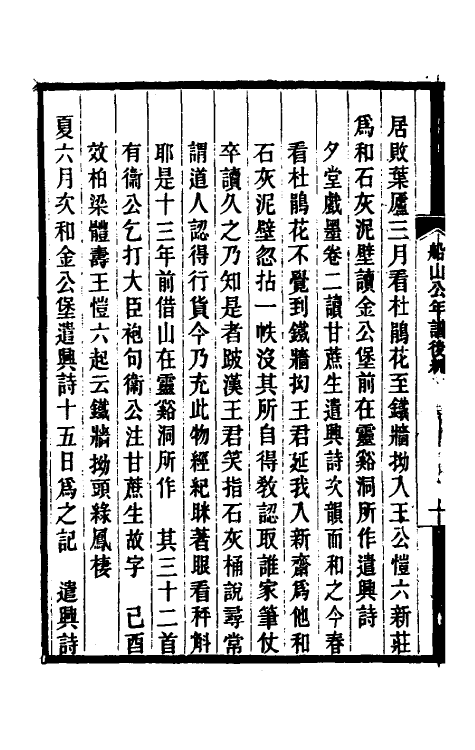 居敗葉廬三月看杜鵑花至鐵牆拗入王公愷六新莊
爲和石灰泥壁讀金公堡前在靈谿洞所作遣興詩
夕堂戲墨卷二讀甘蔗生遣興詩次韻而和之今春
看杜鵑花不覺到鐵牆拗王君延我入新齋爲他和
石灰泥壁忽拈一帙沒其所自得敎認取誰家筆仗
卒讀久之乃知是者跛漢王君笑指石灰桶說尋常
謂道人認得行貨今乃充此物經紀眯著眼看秤斛
耶是十三年前借山在靈谿洞所作　其三十二首
有衞公乞打大臣袍句衞公注甘蔗生故字　己酉
效柏梁體壽王愷六起云鐵牆拗頭綠鳳棲
夏六月次和金公堡遣興詩十五日爲之記　遣興詩
船山公年譜後編